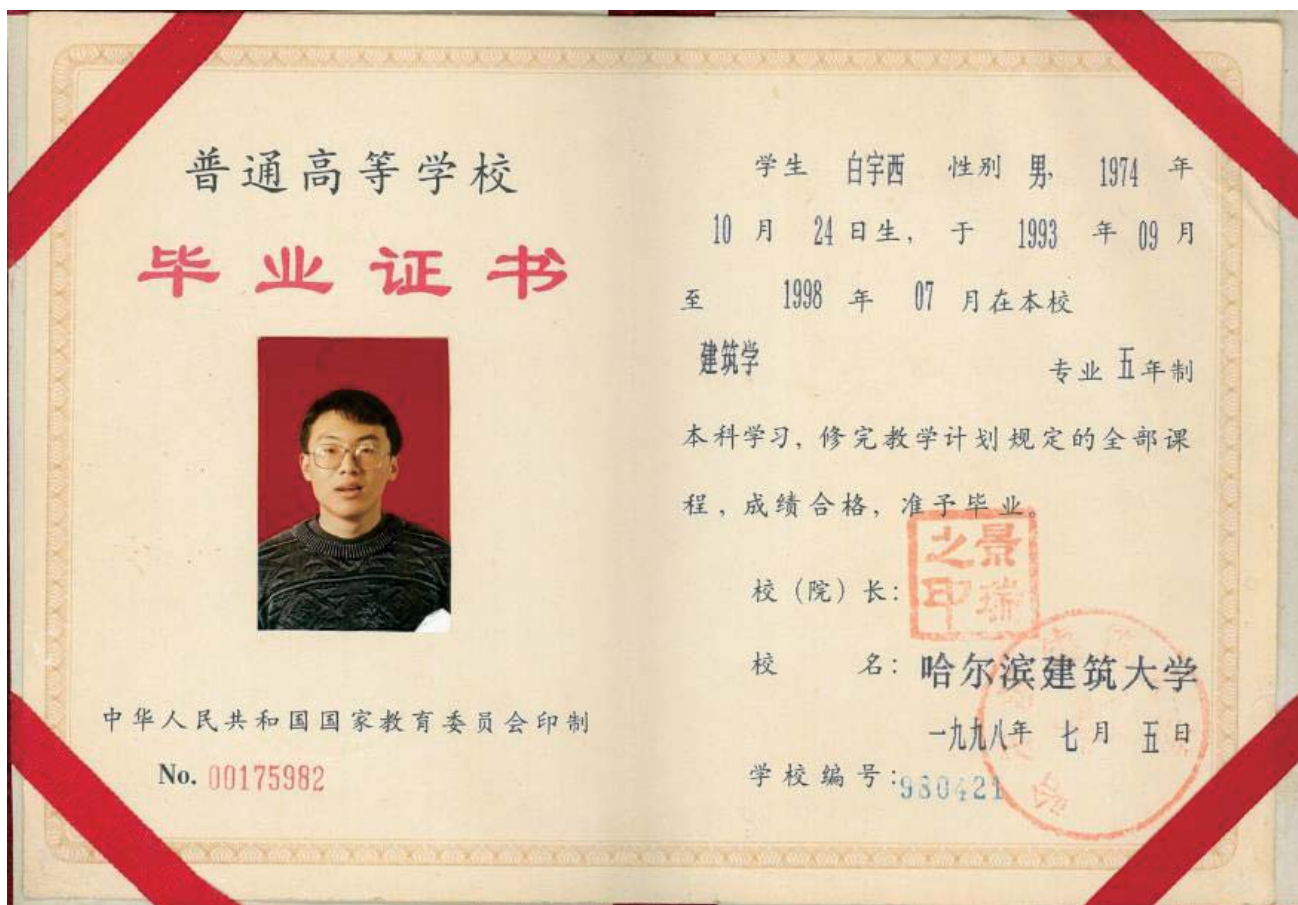 普通高等学校
毕业证书
中华人民共和国国家教育委员会印制
No. 00175982
学生 白宇西 性别 男, 1974 年
10 月 24 日生, 于 1993 年 09 月
至 1998 年 07 月在本校
建筑学 专业 五年制
本科学习, 修完教学计划规定的全部课
程, 成绩合格, 准予毕业。
校(院)长:
景瑞之印
校 名: 哈尔滨建筑大学
一九九八年 七月 五日
学校编号: 980421